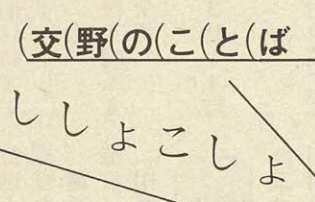 (交(野(の(こ(と(ば
ししょこしょ